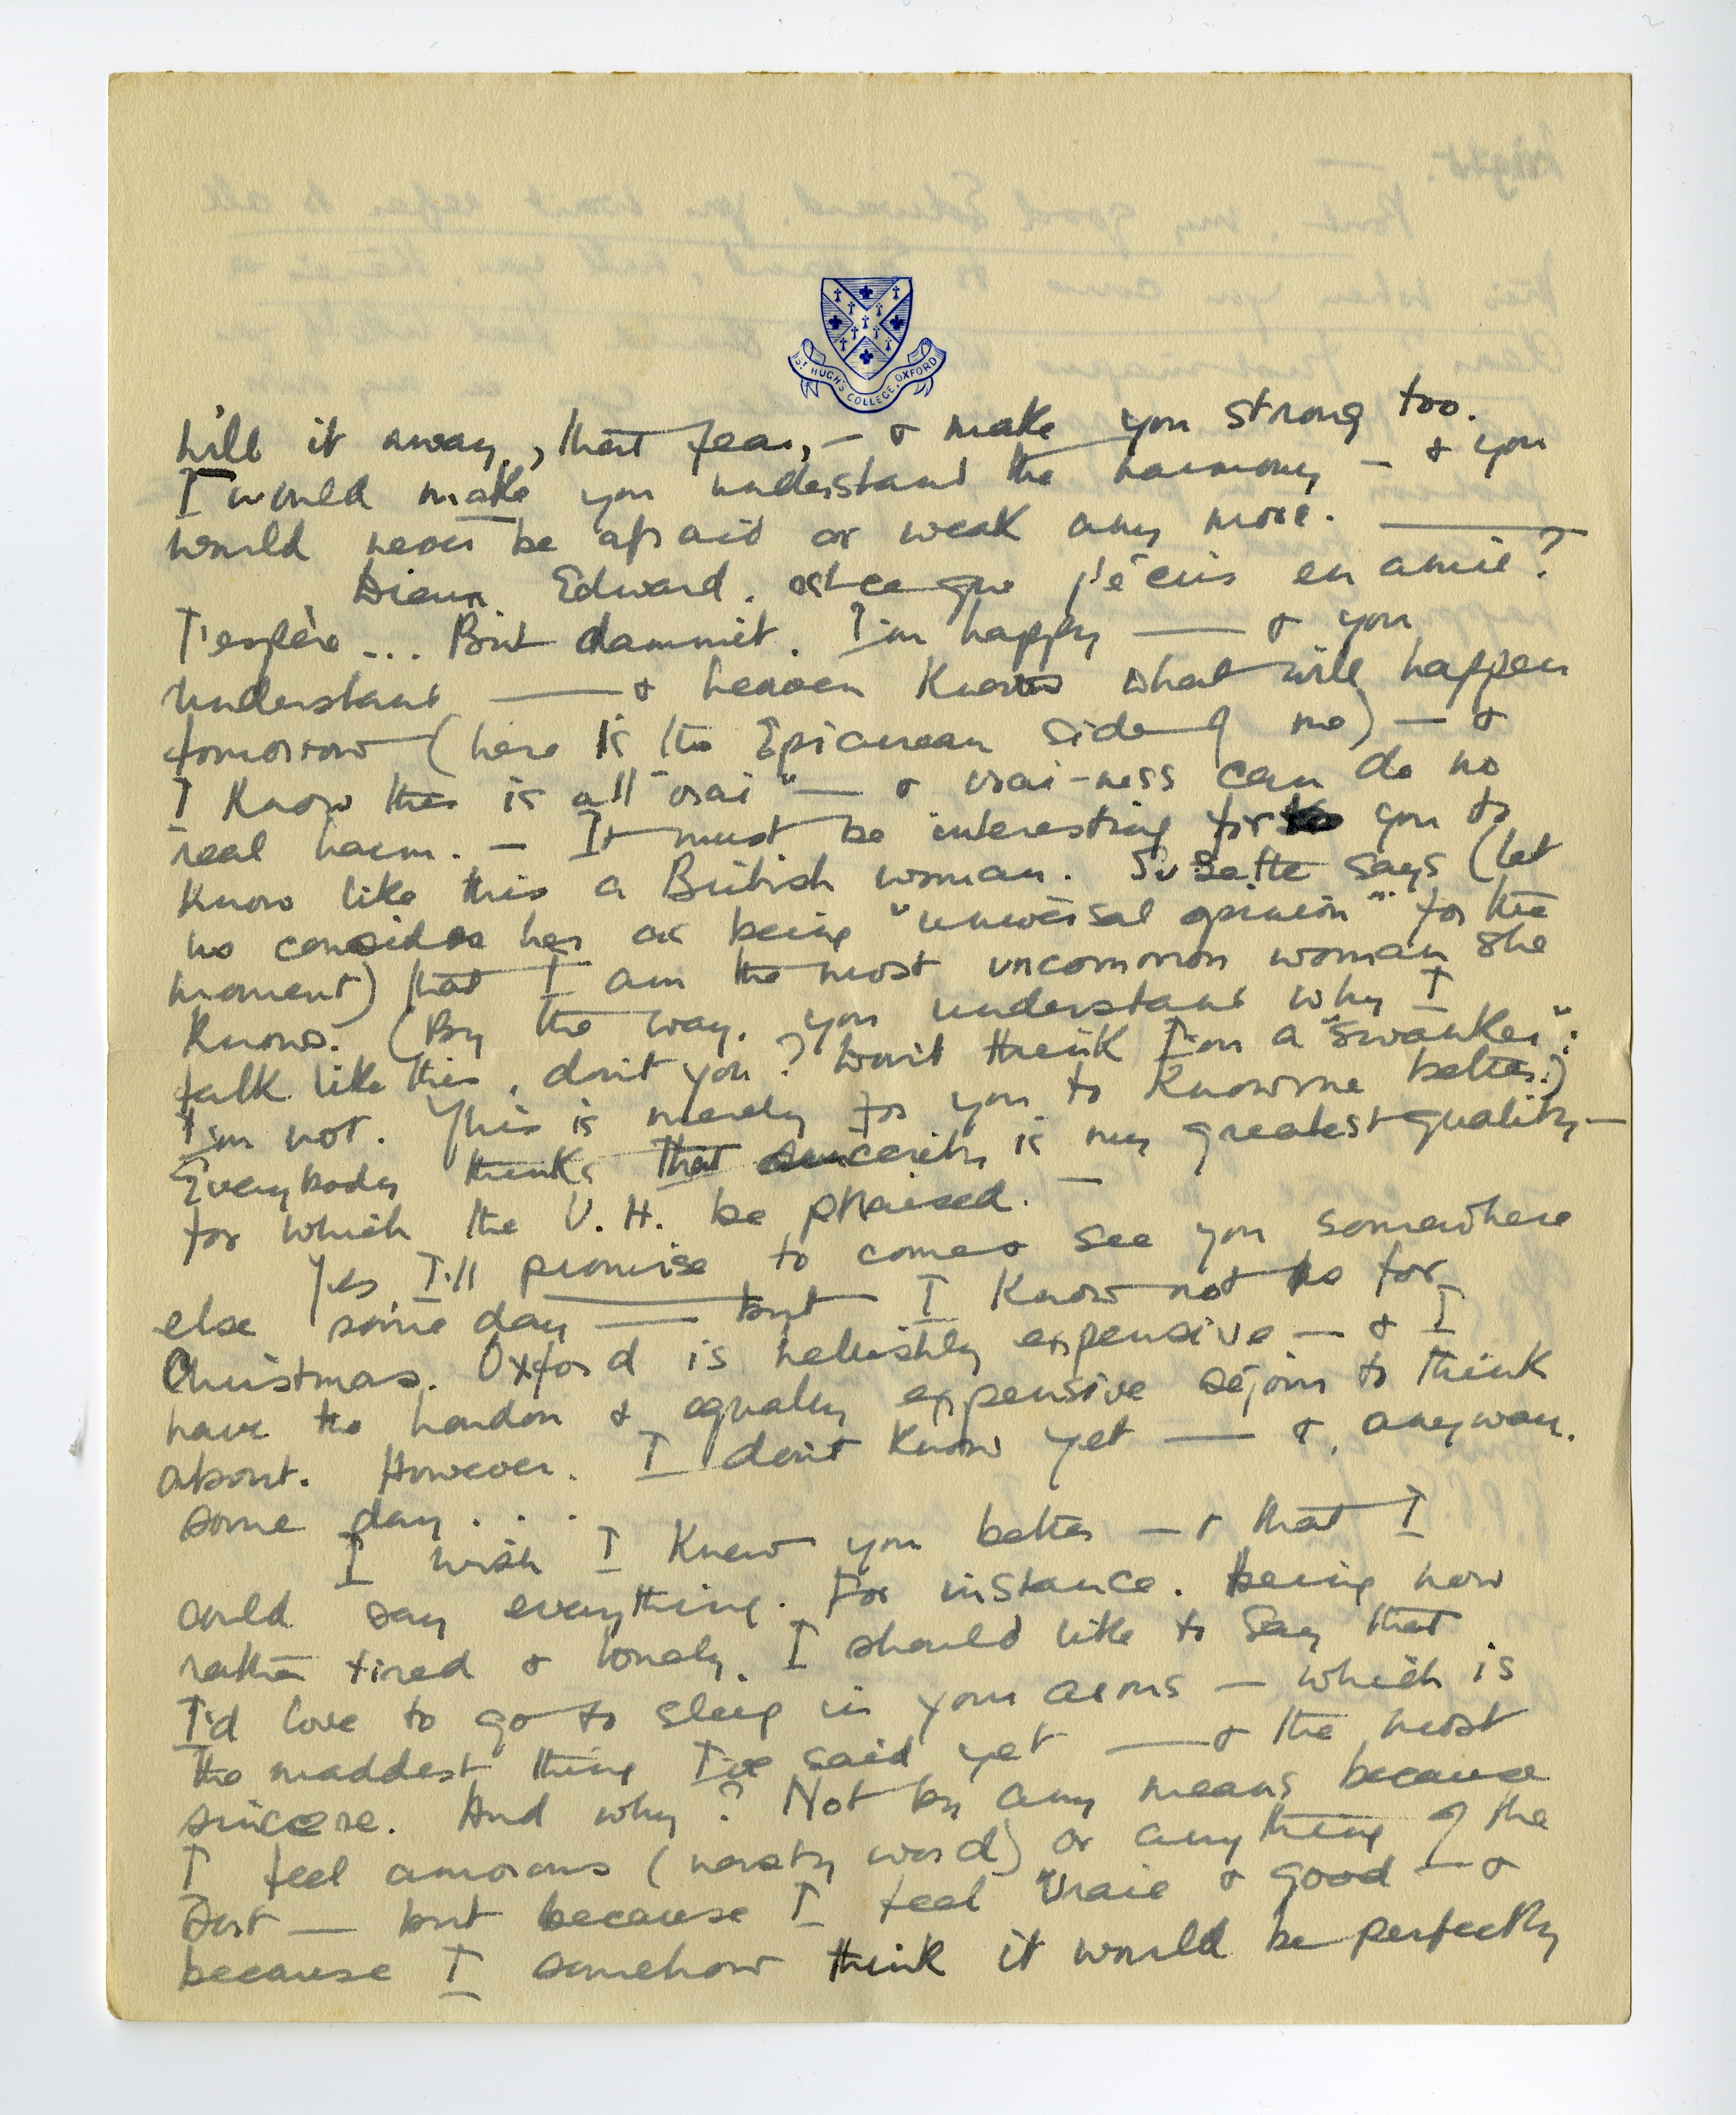 ST HUGH'S COLLEGE, OXFORD
lull it away, that fear, — & make you strong too.
I would make you understand the harmony — & you
would never be afraid or weak any more. —
Edward. est-ce que j'écris en amie?
J'espère ... But dammit. I'm happy — & you
understand — & heaven knows what will happen
tomorrow (here is the Epicurean side of me) — &
I know this is all "vrai" — & vrai-ness can do no
real harm. — It must be interesting for you to
know like this a British woman. Suzette says (let
us consider her as being "universal opinion" for the
moment) that I am the most uncommon woman she
knows. (By the way, you understand why I
talk like this, don't you? Don't think I'm a "swanker";
I'm not. This is merely for you to know me better.)
Everybody thinks that sincerity is my greatest quality —
for which the V. H. be praised. —
Yes I'll promise to come & see you somewhere
else some day — but I know not so for
Christmas. Oxford is hellishly expensive — & I
have the London & equally expensive séjour to think
about. However. I don't know yet — &, anyway.
some day . . .
I wish I knew you better — & that I
could say everything. For instance. Being now
rather tired & lonely. I should like to say that
I'd love to go to sleep in your arms — which is
the maddest thing I've said yet — & the most
sincere. And why? Not by any means because
I feel amorous (nasty word) or anything of the
sort — but because I feel vraie & good — &
because I somehow think it would be perfectly